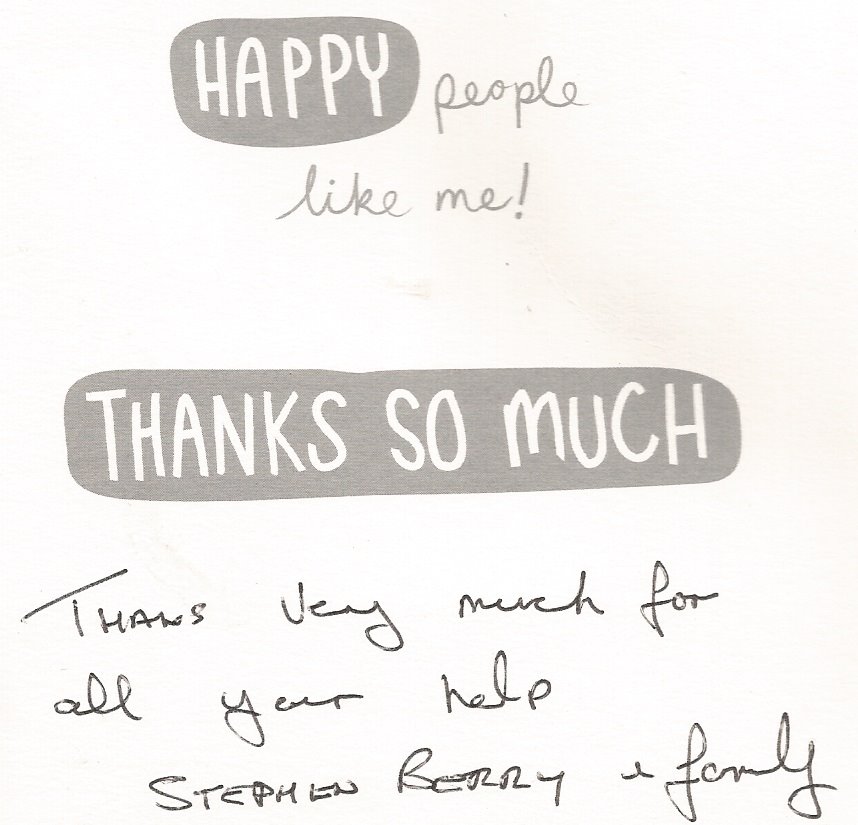 HAPPY people
like me!
THANKS SO MUCH
THANKS Very much for
all your help
STEPHEN BERRY & family